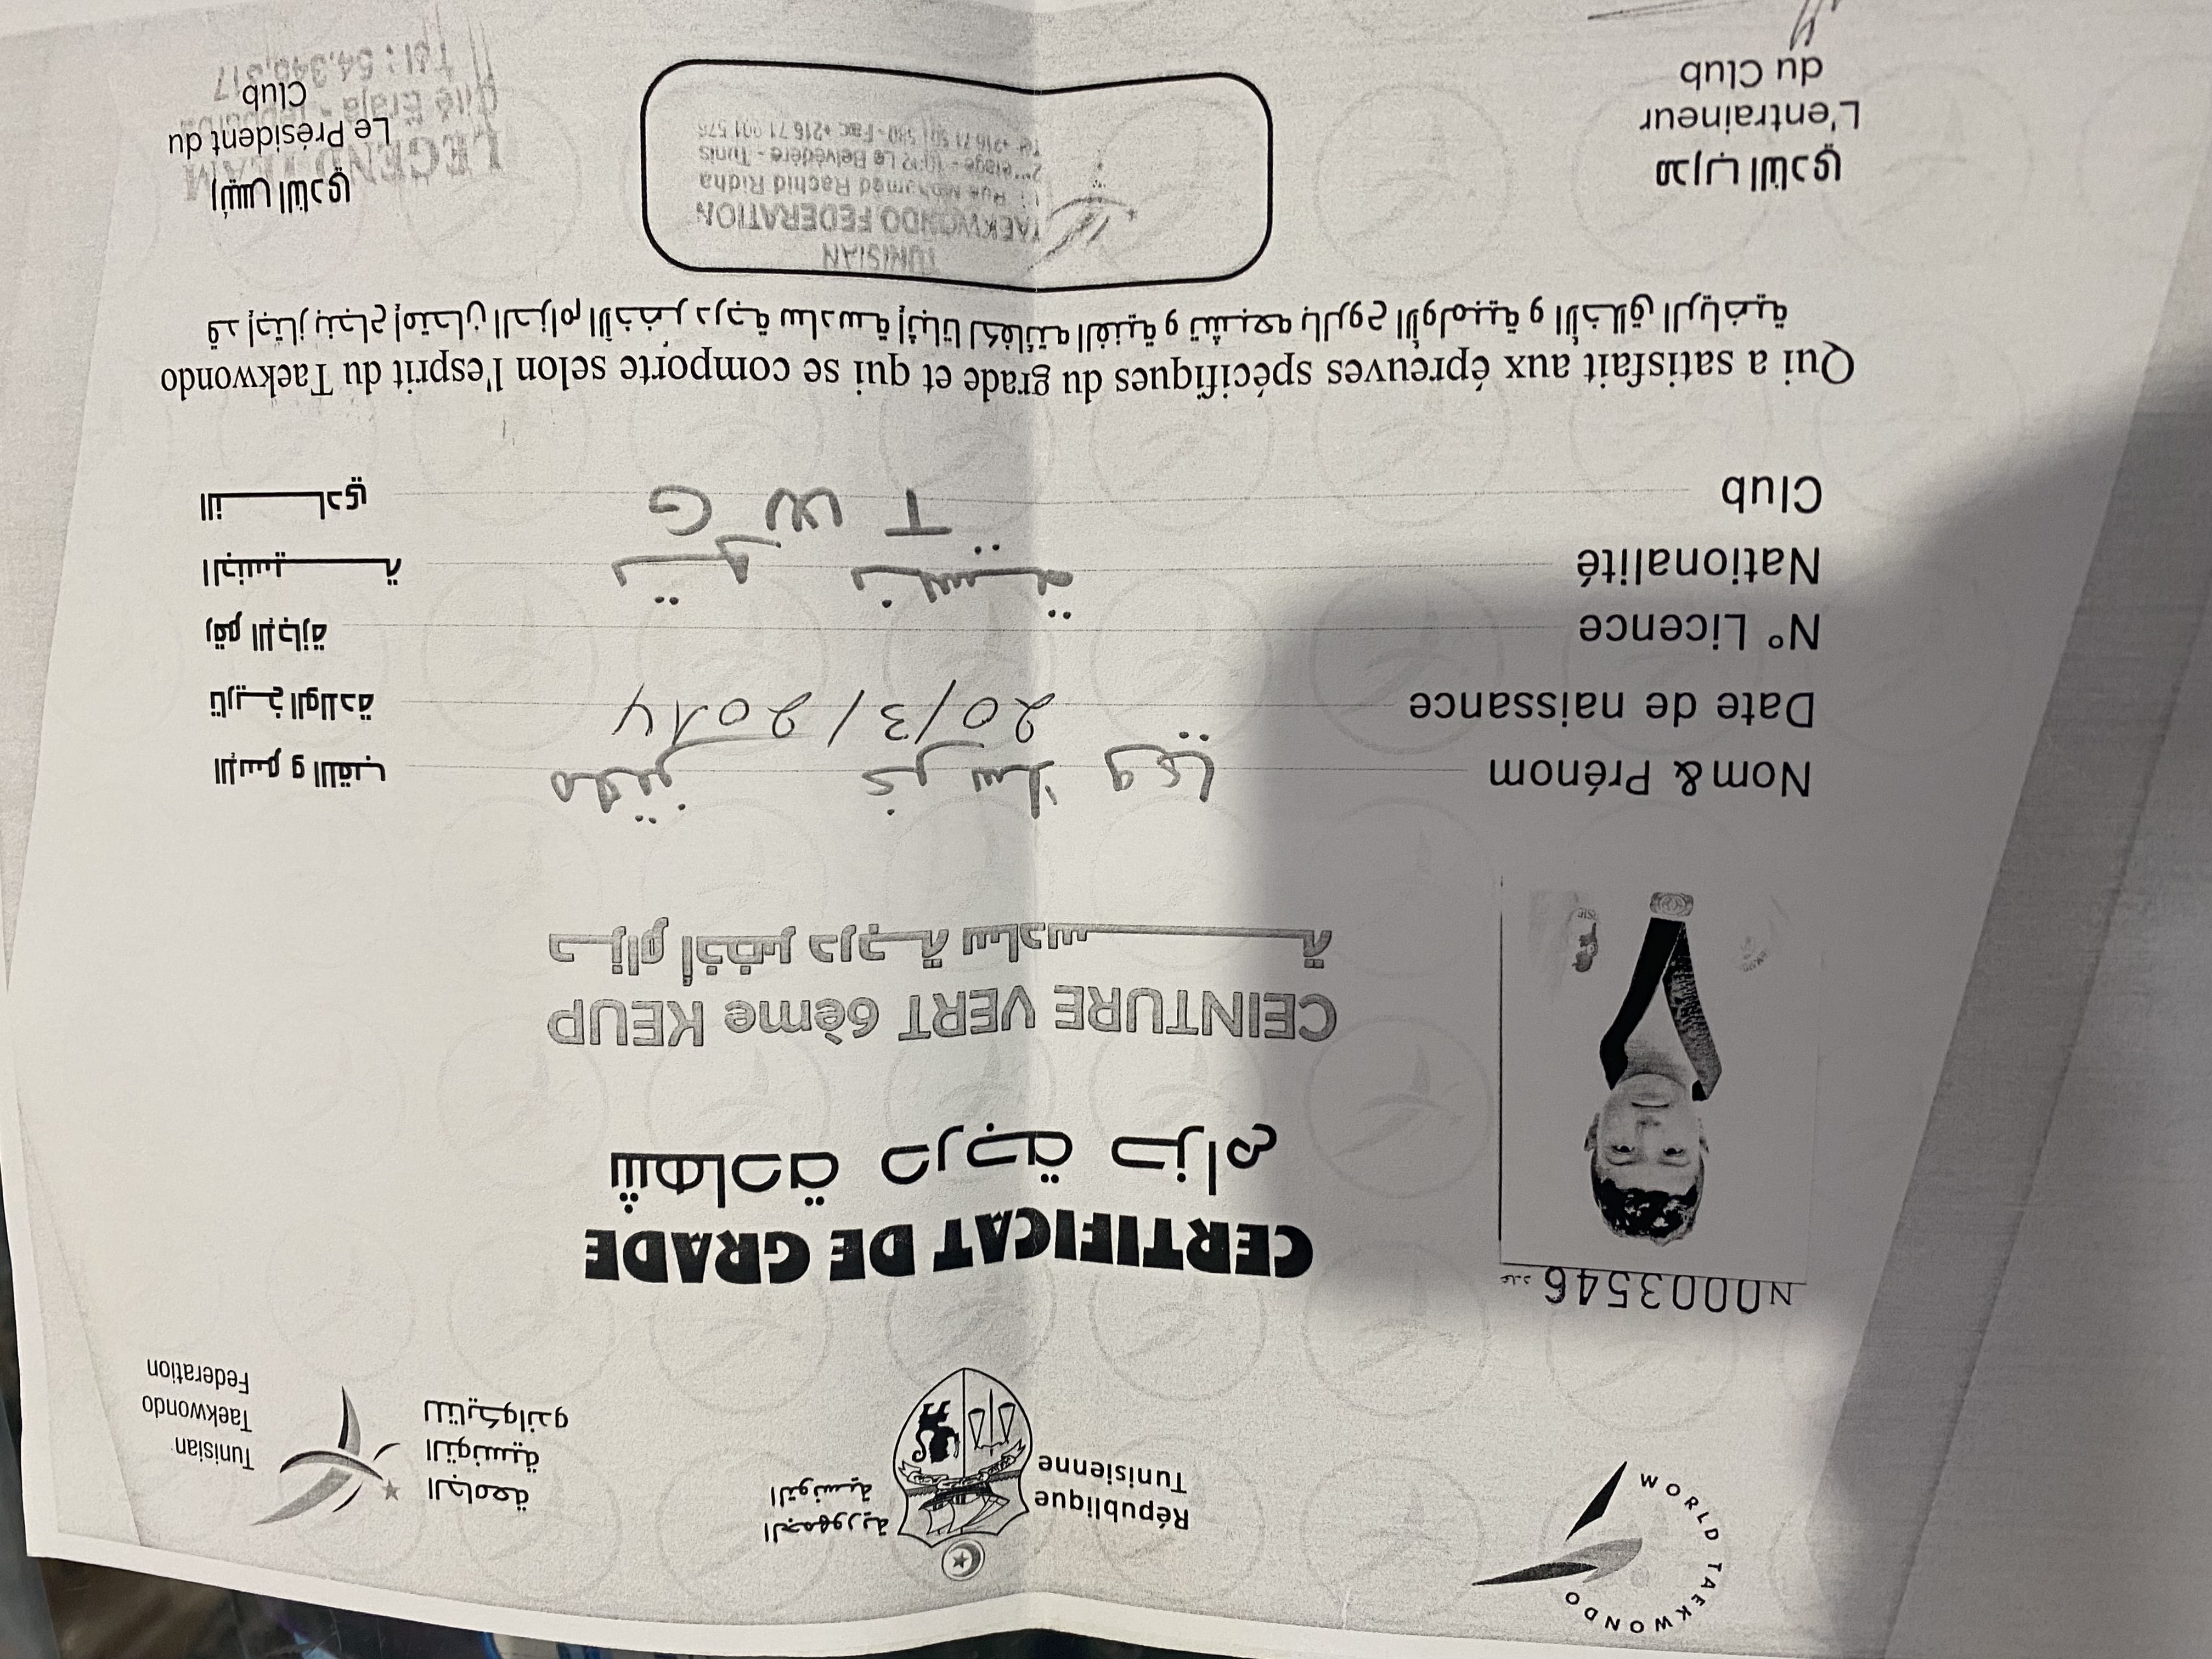 WORLD TAEKWONDO
République
Tunisienne
الجمهورية
التونسية
الجامعة
التونسية
للتايكواندو
Tunisian
Taekwondo
Federation
N0003546 عدد
CERTIFICAT DE GRADE
شهادة درجة حزام
CEINTURE VERT 6ème KEUP
حزام أخضر درجة سادسة
Nom & Prénom
الإسم و اللقب
Date de naissance 20/3/2014 تاريخ الولادة
N° Licence رقم الإجازة
Nationalité تونسية الجنسية
Club T W G النادي
Qui a satisfait aux épreuves spécifiques du grade et qui se comporte selon l'esprit du Taekwondo
قد إجتاز بنجاح إمتحان الحزام الأخضر درجة سادسة إثباتا لكفائته الفنية و تشبعه بالروح الأولمبية و الأخلاق الرياضية
TUNISIAN
TAEKWONDO FEDERATION
Rue Mohamed Rachid Ridha
2ème étage - 1002 Le Belvédère - Tunis
مدرب النادي
L'entraineur
du Club
رئيس النادي
Le Président du
Club
LEGEND TEAM
Tél : 54.340.317